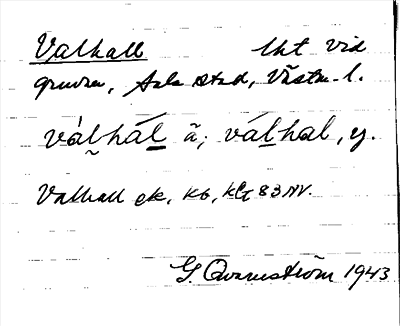 Valhall lht vid
gruvan, Sala stad, Västm. l.
válhál ä; válhal, y.
Valhall ek, Kb, KG 83 NV.
G. Qvarnström 1943